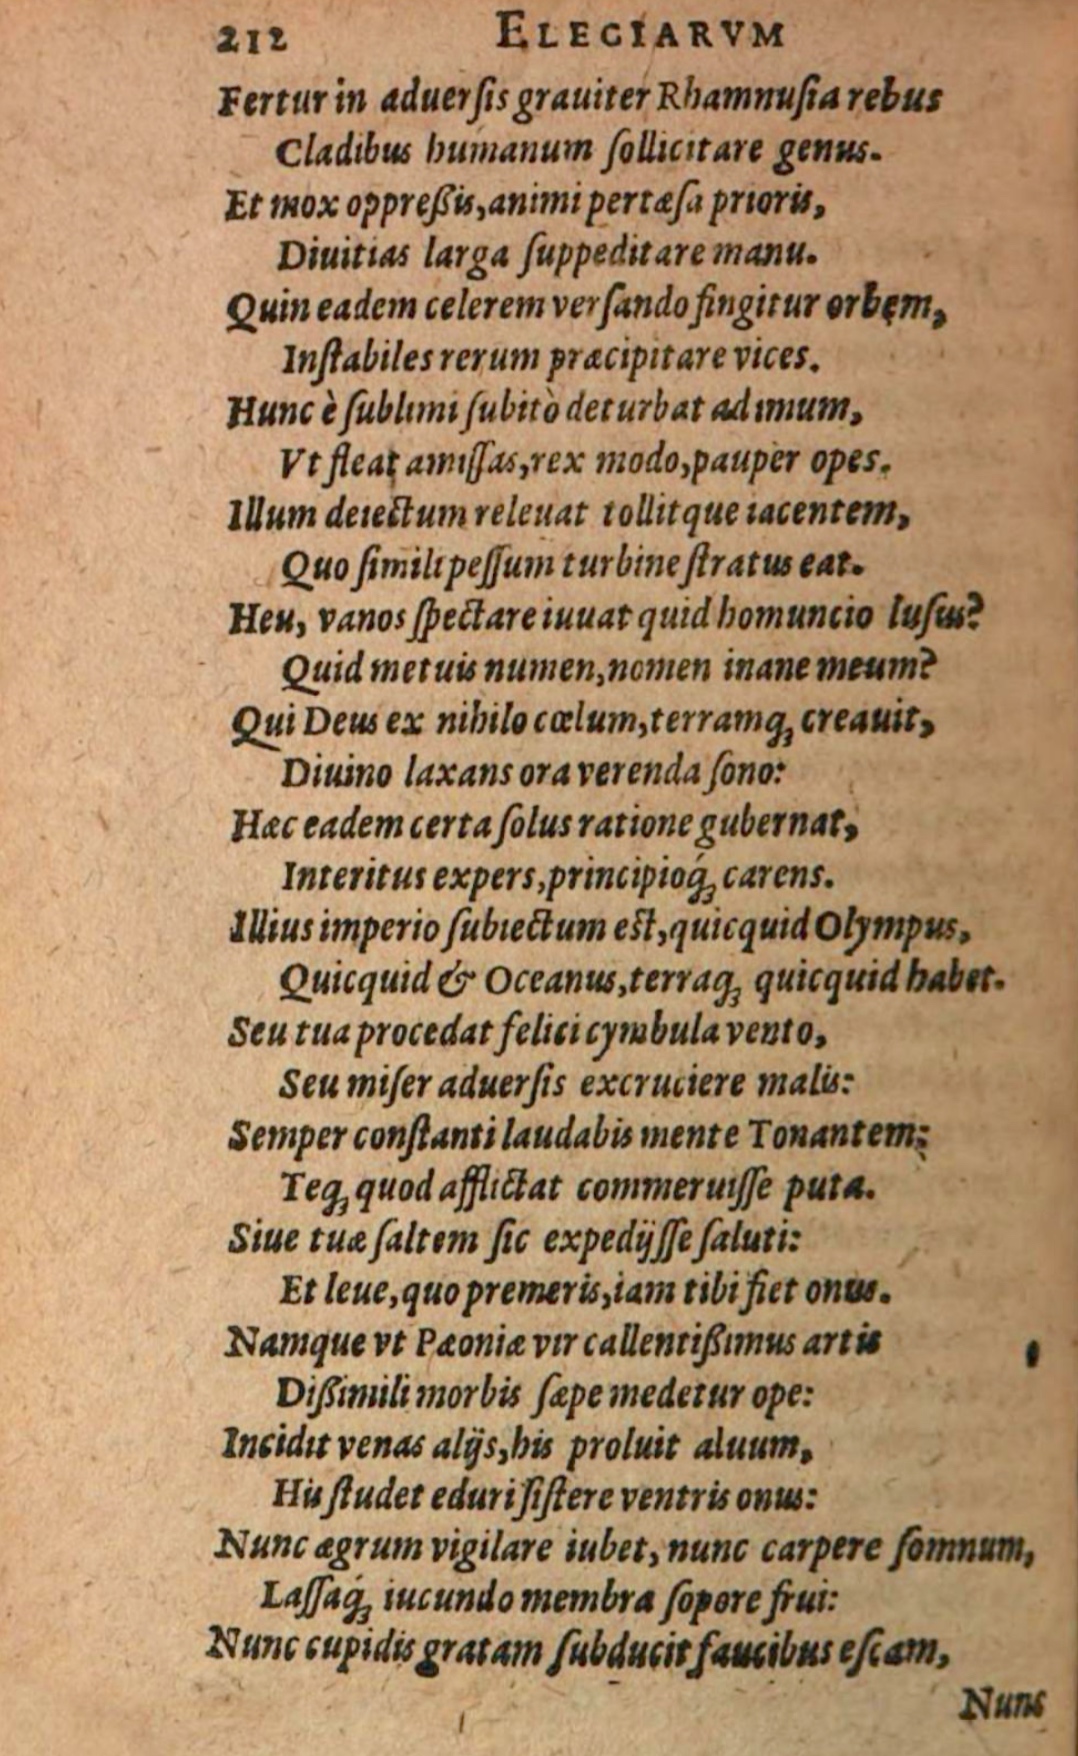 212 ELEGIARVM
Fertur in aduerſis grauiter Rhamnuſia rebus
Cladibus humanum ſollicitare genus.
Et mox oppreßis, animi pertæſa prioris,
Diuitias larga ſuppeditare manu.
Quin eadem celerem verſando fingitur orbem,
Inſtabiles rerum præcipitare vices.
Hunc è ſublimi ſubitò deturbat ad imum,
Vt fleat amiſſas, rex modo, pauper opes.
Illum deiectum releuat tollitque iacentem,
Quo ſimili peſſum turbine ſtratus eat.
Heu, vanos ſpectare iuuat quid homuncio luſus?
Quid metuis numen, nomen inane meum?
Qui Deus ex nihilo cœlum, terramq́; creauit,
Diuino laxans ora verenda ſono:
Hæc eadem certa ſolus ratione gubernat,
Interitus expers, principioq́; carens.
Illius imperio ſubiectum eſt, quicquid Olympus,
Quicquid & Oceanus, terraq; quicquid habet.
Seu tua procedat felici cymbula vento,
Seu miſer aduerſis excruciere malis:
Semper conſtanti laudabis mente Tonantem:
Teq; quod afflictat commeruiſſe puta.
Siue tuæ ſaltem ſic expedijſſe ſaluti:
Et leue, quo premeris, iam tibi fiet onus.
Namque vt Pæoniæ vir callentißimus artis
Dißimili morbis ſæpe medetur ope:
Incidit venas alijs, his proluit aluum,
His ſtudet eduri ſiſtere ventris onus:
Nunc ægrum vigilare iubet, nunc carpere ſomnum,
Laſſaq́; iucundo membra ſopore frui:
Nunc cupidis gratam ſubducit faucibus eſcam,
Nunc